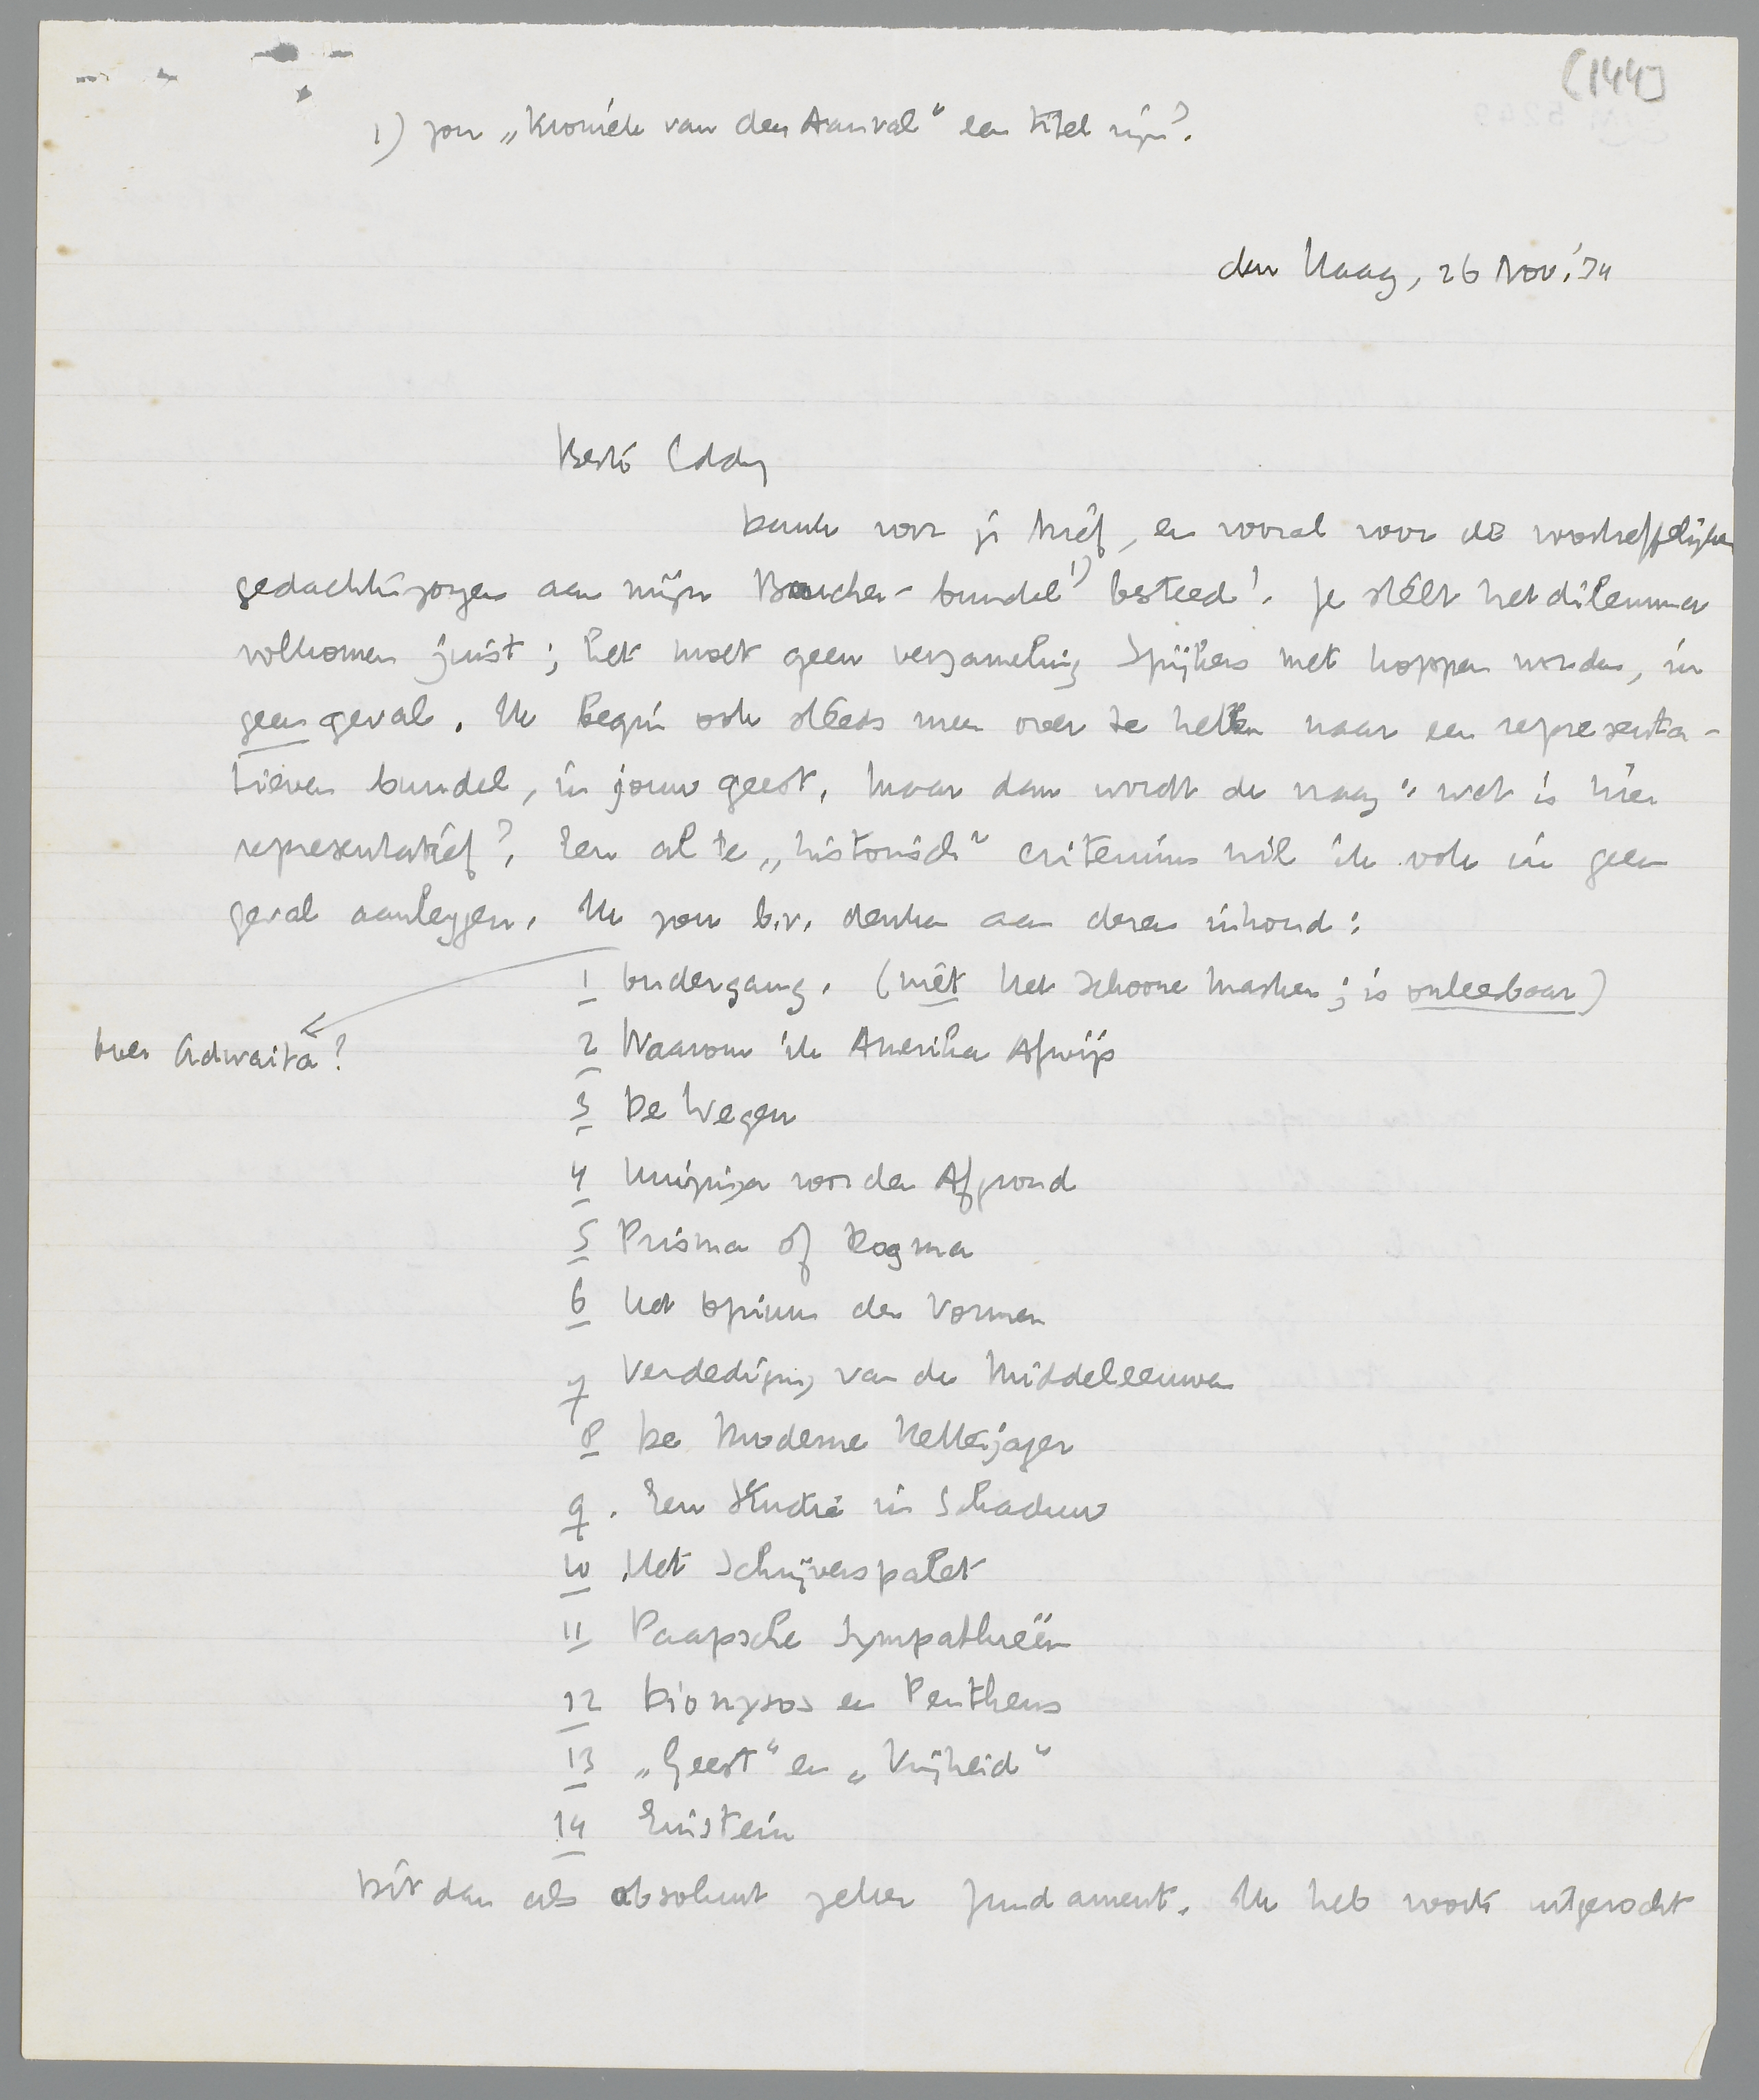 (144)
1) zou „Kroniek van den Aanval" een titel zijn?
den Haag, 26 Nov. '34
Beste Eddy
Dank voor je brief, en vooral voor de voortreffelijke
gedachtezorgen aan mijn Boucher-bundel 1) besteed! Je stelt het dilemma
volkomen juist; het moet geen verzameling Spijkers met koppen worden, in
geen geval. Ik begin ook steeds meer over te hellen naar een representa-
tieven bundel, in jouw geest. Maar dan wordt de vraag: wat is hier
representatief? Een al te „historisch" criterium wil ik ook in geen
geval aanleggen. Ik zou b.v. denken aan deze inhoud:
1 Ondergang. (niet Het Schoone Masker; is onleesbaar)
Over Adwaita?
2 Waarom ik Amerika Afwijs
3 De Wegen
4 Huizinga voor den Afgrond
5 Prisma of Dogma
6 Het Opium der Vormen
7 Verdediging van de Middeleeuwen
8 De Moderne Ketterjager
9. Een Studie in Schaduw
10 Het Schrijverspalet
11 Paapsche Sympathieën
12 Dionysos en Pentheus
13 „Geest" en „Vrijheid"
14 Einstein
Dit dan als absoluut zeker fundament. Ik heb voorts uitgezocht